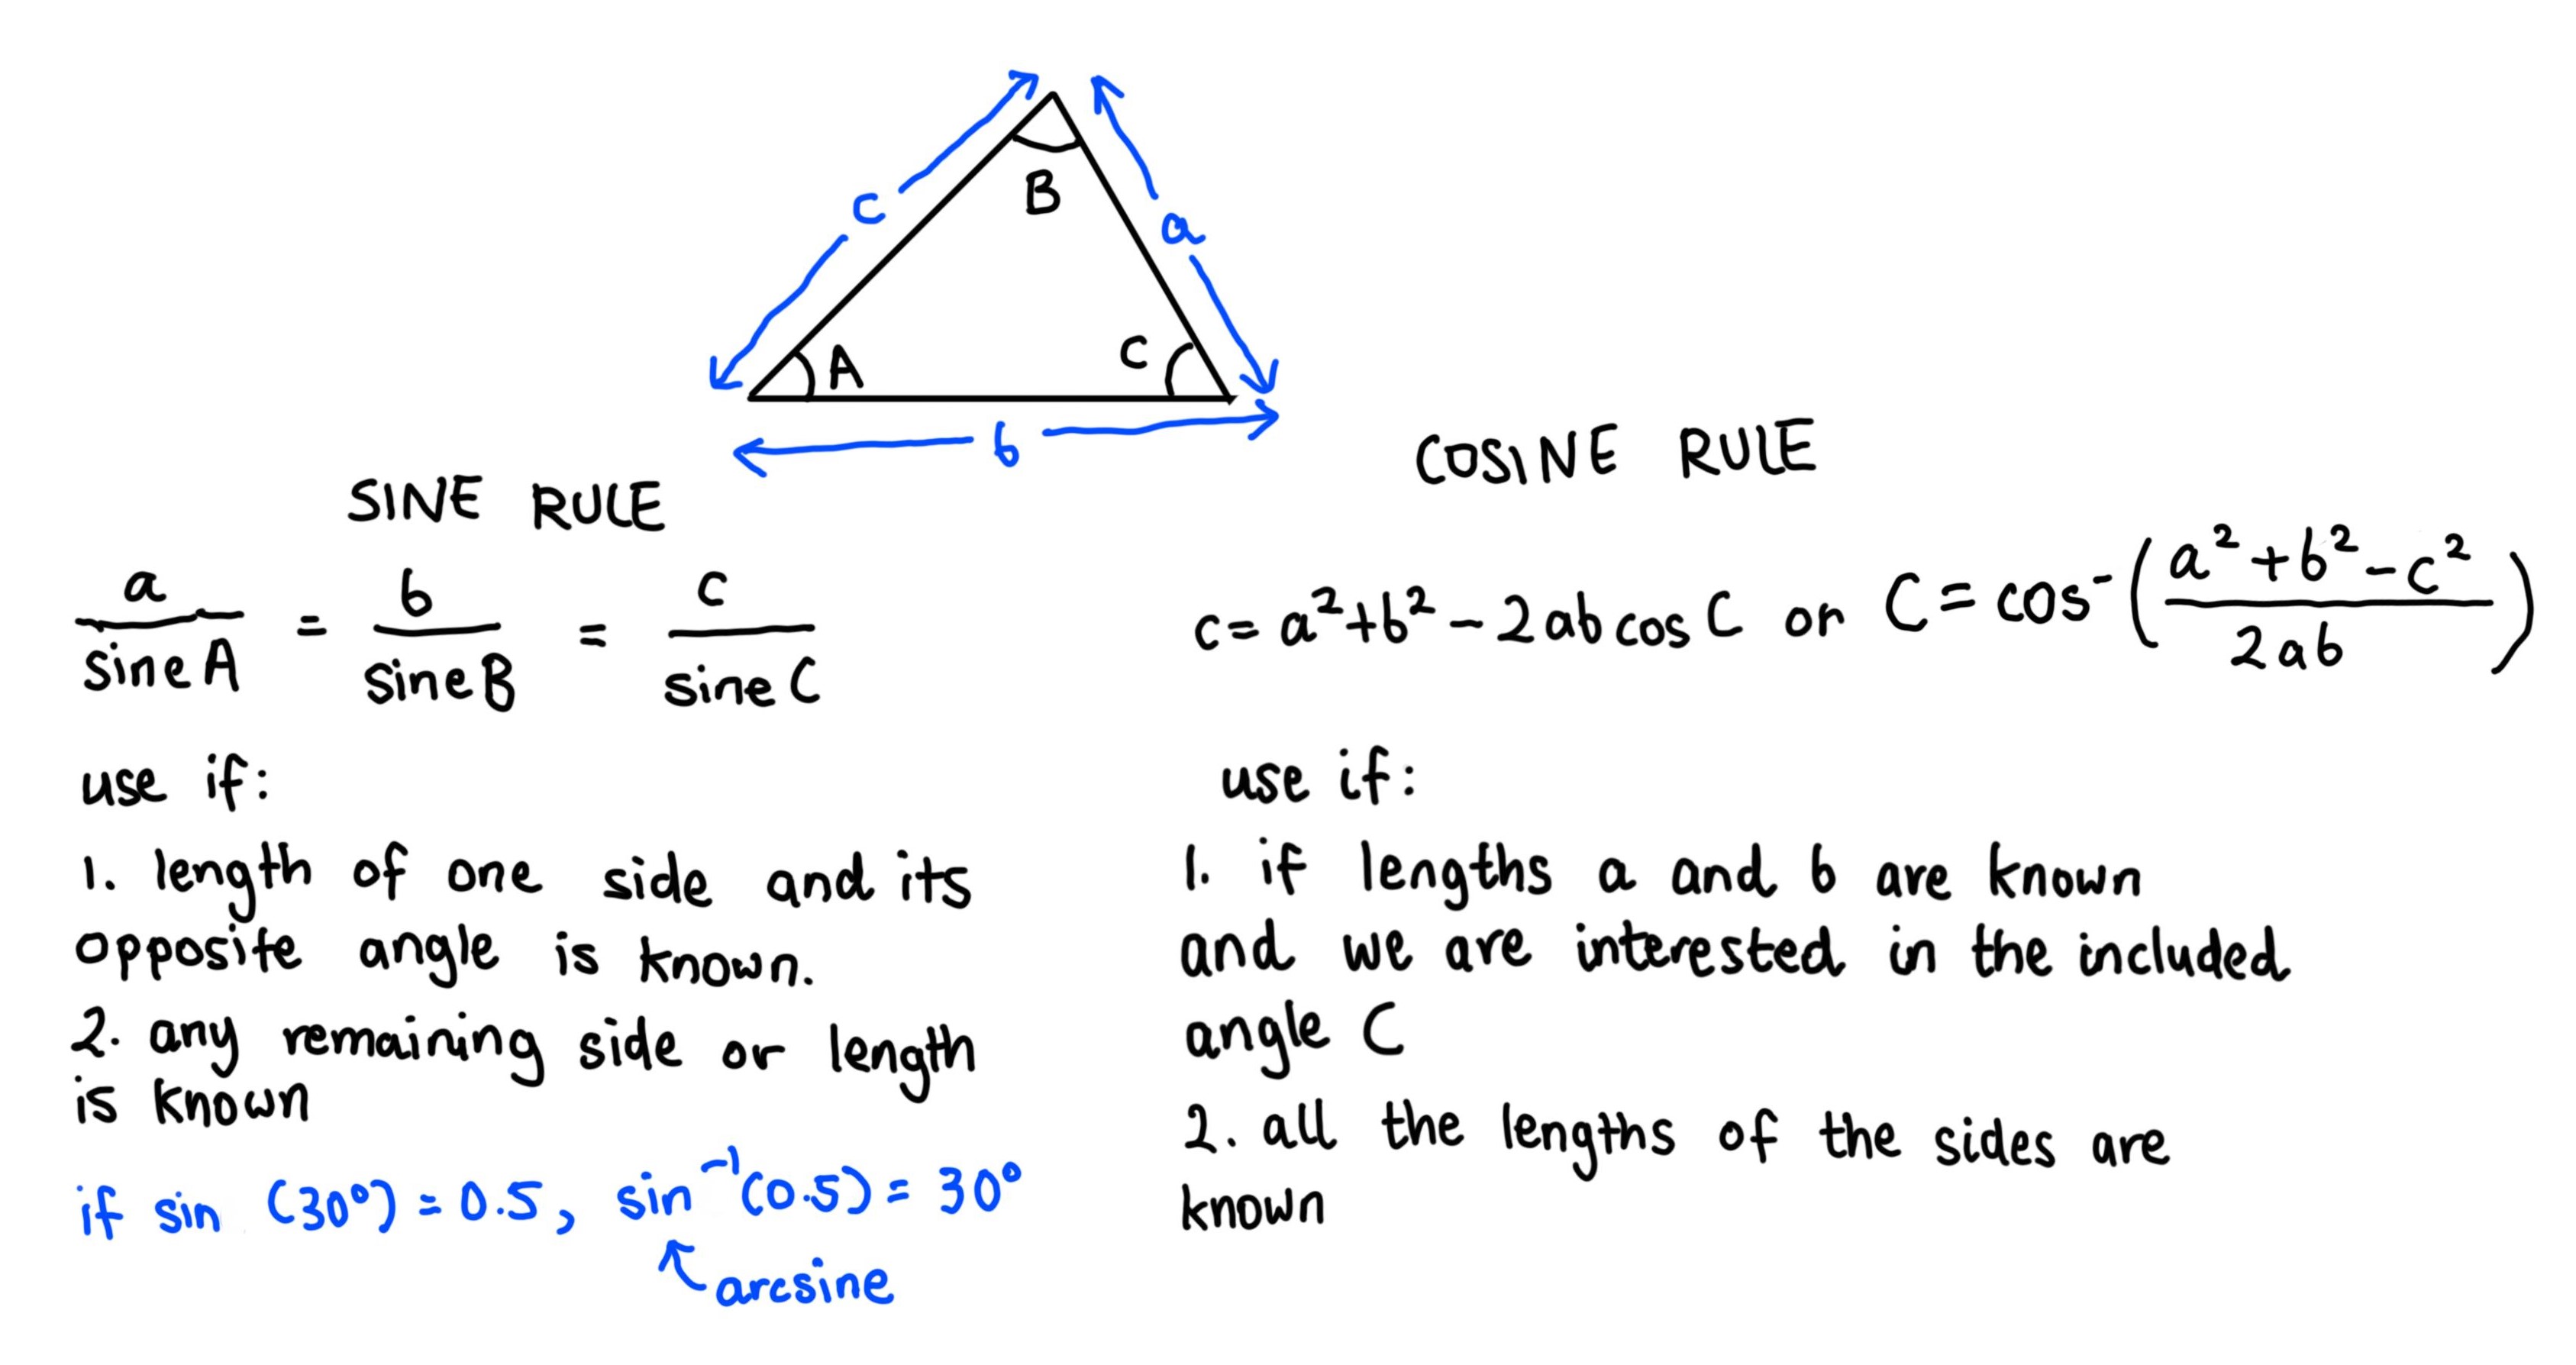 c
B
a
A
C
b
SINE RULE
a/sine A = b/sine B = c/sine C
use if:
1. length of one side and its
opposite angle is known.
2. any remaining side or length
is known
if sin (30°) = 0.5, sin⁻¹(0.5) = 30°
arcsine
COSINE RULE
c = a² + b² - 2ab cos C or C = cos⁻ ((a² + b² - c²)/2ab)
use if:
1. if lengths a and b are known
and we are interested in the included
angle C
2. all the lengths of the sides are
known